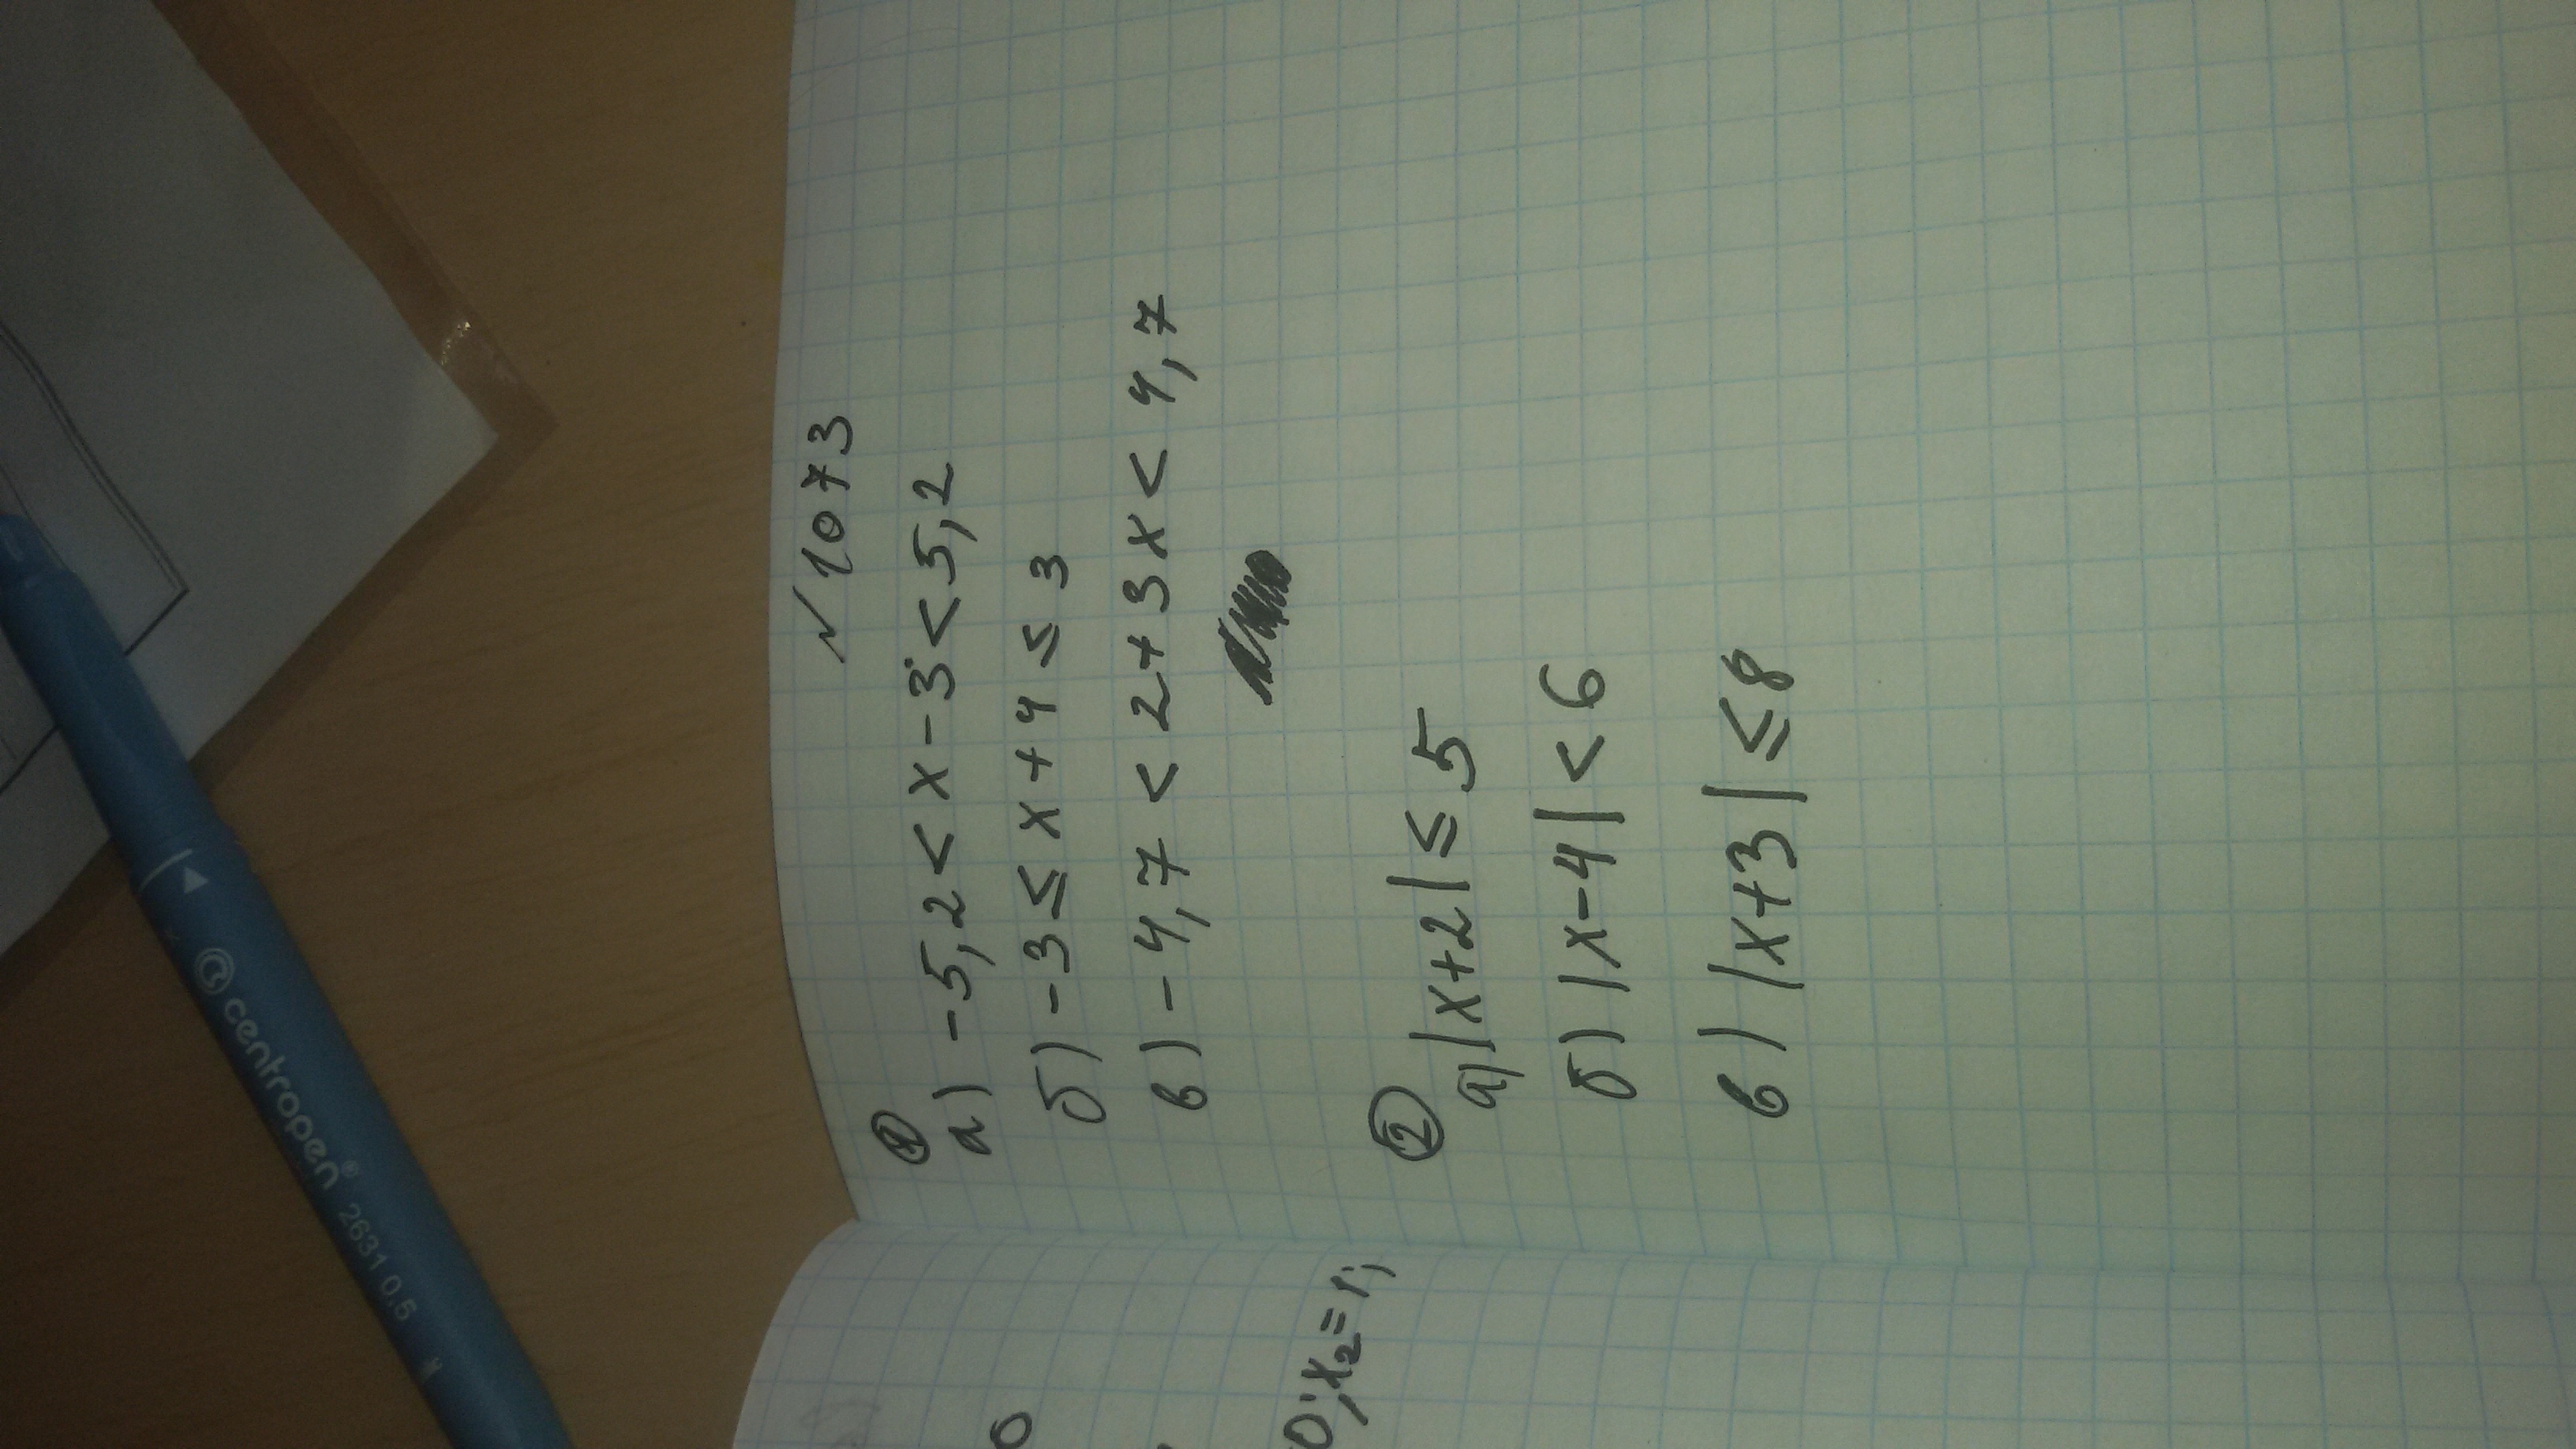 N 1073
①
а) -5,2 < x - 3 < 5,2
б) -3 ≤ x + 4 ≤ 3
в) -4,7 < 2 + 3x < 4,7
②
а) |x+2| ≤ 5
б) |x-4| < 6
в) |x+3| ≤ 8
0; x₂=1;
centropen® 2631 0,5